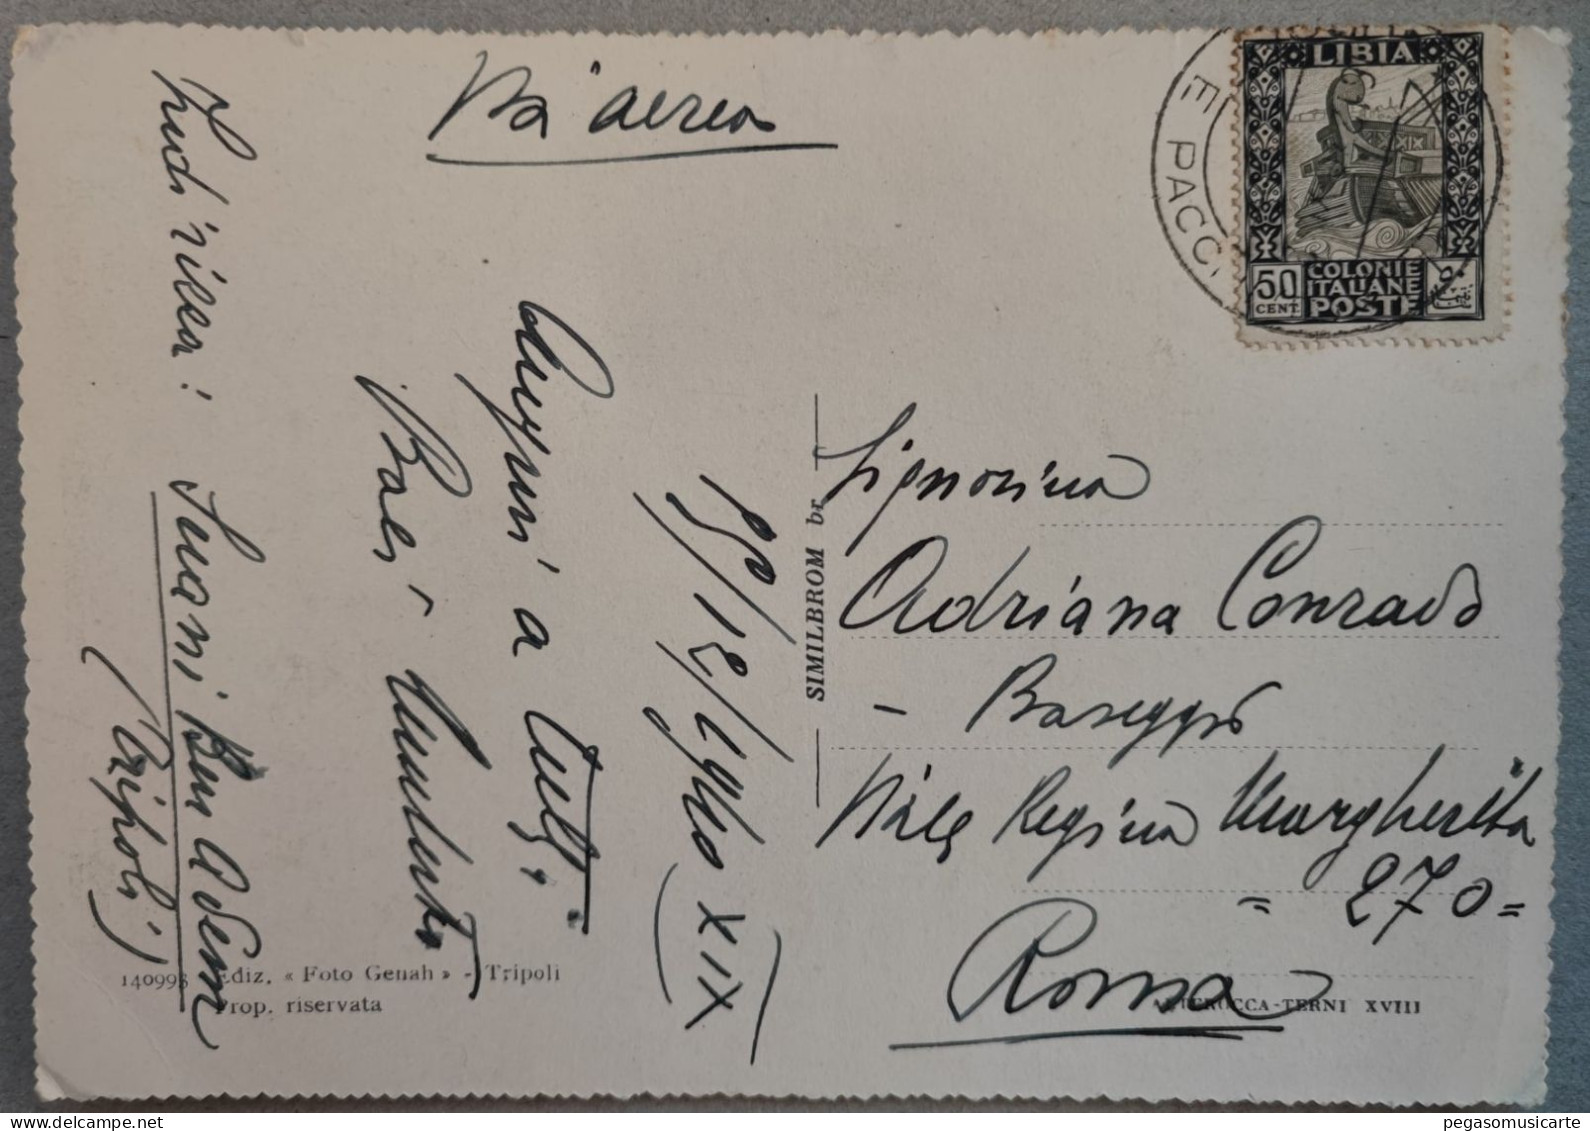 Via aerea
LIBIA
50
CENT.
COLONIE
ITALIANE
POSTE
E PACCHI
15/12/1940 XIX
Auguri a tutti
Baci
Umberto
Indirizzo: Suani Ben Adem
(Tripoli)
SIMILBROM br
Signorina
Adriana Conrado
- Baseggio
Viale Regina Margherita
= 270 =
Roma
140993 Ediz. « Foto Genah » - Tripoli
Prop. riservata
ALTEROCCA-TERNI XVIII
pegasomusicarte